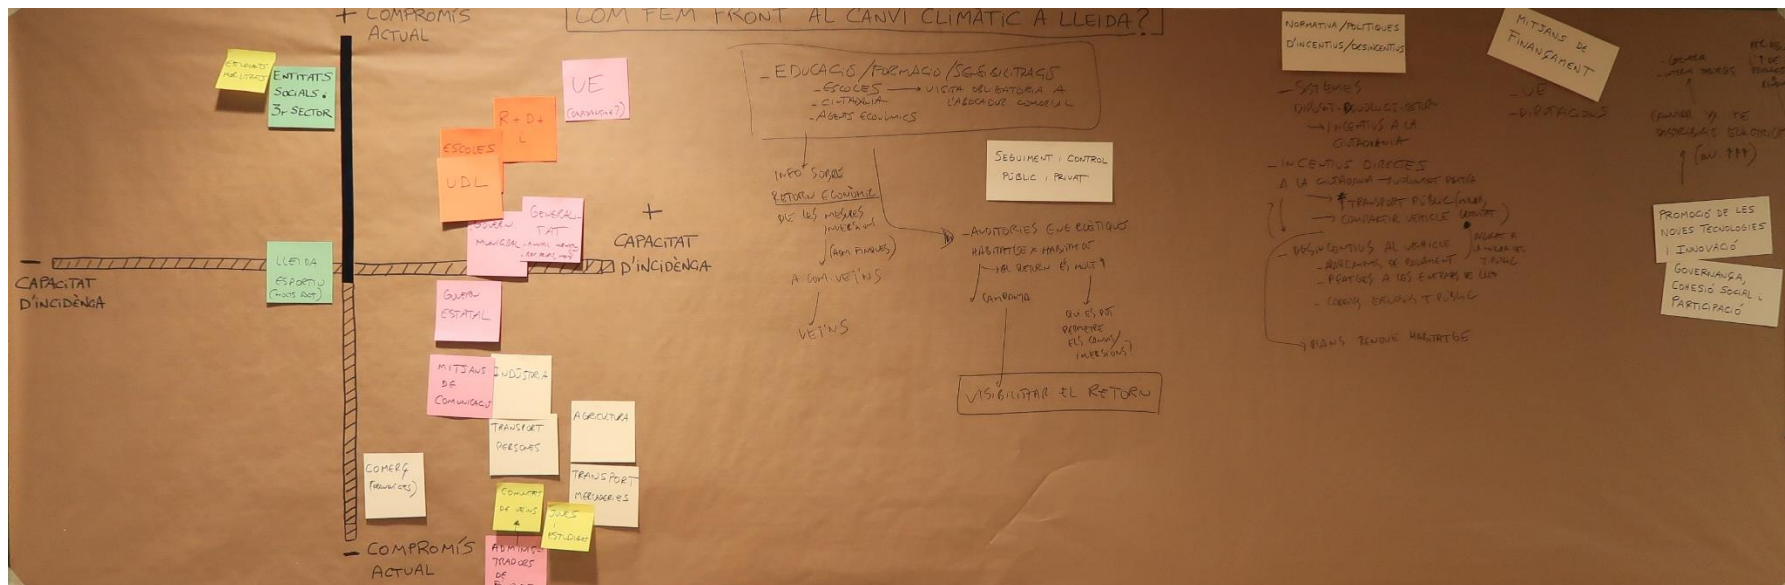 COM FEM FRONT AL CANVI CLIMÀTIC A LLEIDA?
+ COMPROMÍS
ACTUAL
ENTITATS
SOCIALS i
3r SECTOR
UE
R+D+
ESCOLES
UDL
GOVERN
MUNICIPAL
GENERALI-
TAT
+
CAPACITAT
D'INCIDÈNCIA
- CAPACITAT
D'INCIDÈNCIA
LLEIDA
ESPORTIU
GOVERN
ESTATAL
MITJANS
DE
COMUNICACIÓ
INDÚSTRIA
TRANSPORT
PERSONES
AGRICULTURA
TRANSPORT
MERCADERIES
COMERÇ
COMUNITAT
DE VEÏNS
JOVES
I
ESTUDIANTS
ADMINIS-
TRADORS
DE
- COMPROMÍS
ACTUAL
- EDUCACIÓ/FORMACIÓ/SENSIBILITZACIÓ
- ESCOLES → VISITA OBLIGATORIA A
L'ABOCADOR COMARCAL
- CIUTADANIA
- AGENTS ECONÒMICS
INFO SOBRE
RETORN ECONÒMIC
DE LES MESURES
INVERSIONS
(ADM FINQUES)
A COM. VEÏNS
VEÏNS
SEGUIMENT I CONTROL
PÚBLIC I PRIVAT
- AUDITORIES ENERGÈTIQUES
HABITATGE X HABITATGE
EL RETORN ÉS MOLT
CAMPANYA
QUI ES POT
PERMETRE
ELS CANVIS/
INVERSIONS?
VISIBILITZAR EL RETORN
NORMATIVA/POLÍTIQUES
D'INCENTIUS/DESINCENTIUS
- SISTEMES
→ INCENTIUS A LA
CIUTADANIA
- INCENTIUS DIRECTES
A LA CIUTADANIA
TRANSPORT PÚBLIC
→ COMPARTIR VEHICLE
- DESINCENTIUS AL VEHICLE
- PEATGES A LES ENTRADES DE
T. PÚBLIC
→ PLANS RENOVE HABITATGE
MITJANS DE
FINANÇAMENT
- UE
- DIPUTACIONS
PROMOCIÓ DE LES
NOVES TECNOLOGIES
I INNOVACIÓ
GOVERNANÇA,
COHESIÓ SOCIAL I
PARTICIPACIÓ